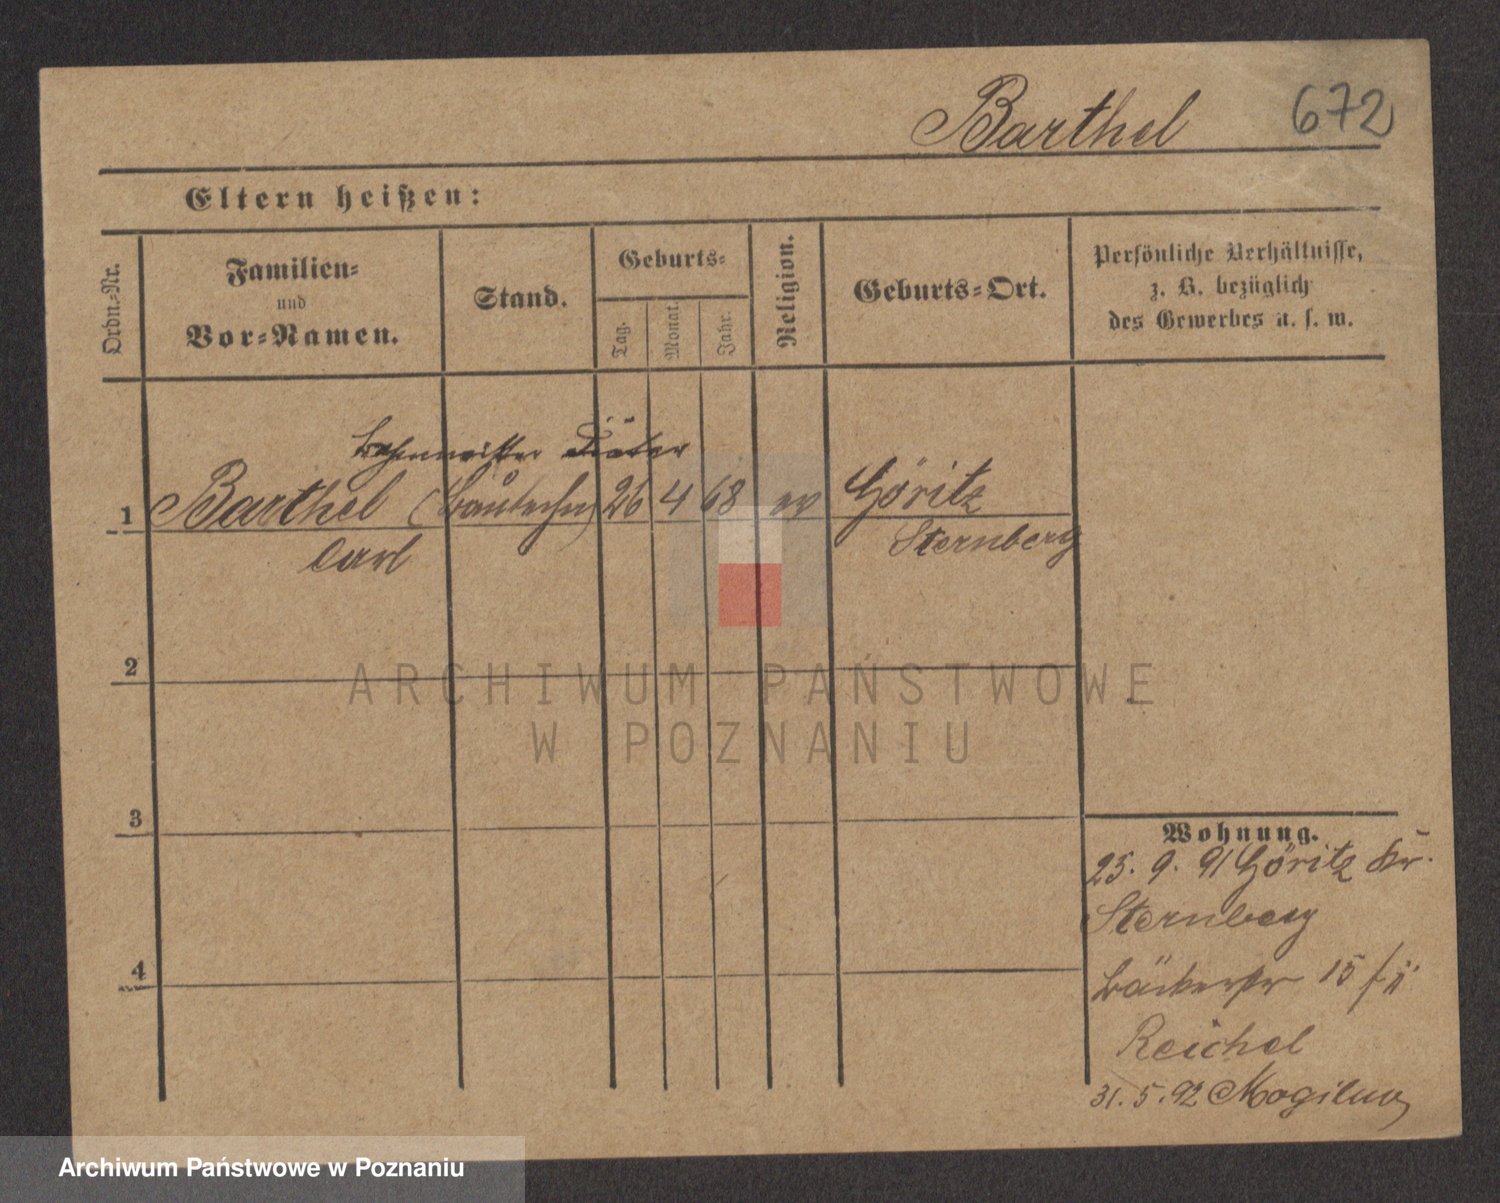 Barthel 672
Eltern heißen:
Ordn.-Nr.
Familien-
und
Vor-Namen.
Stand.
Geburts-
Tag.
Monat.
Jahr.
Religion.
Geburts-Ort.
Persönliche Verhältnisse,
z. B. bezüglich
des Gewerbes u. s. w.
Bahnmeister Diätar
1 Barthel (Bautechn) 26 4 68 ev Göritz
Carl Sternberg
2
3
4
Wohnung.
25. 9. 91 Göritz Kr.
Sternberg
Bäckerstr 15
Reichel
31. 5. 92 Mogilno
ARCHIWUM PAŃSTWOWE
W POZNANIU
Archiwum Państwowe w Poznaniu